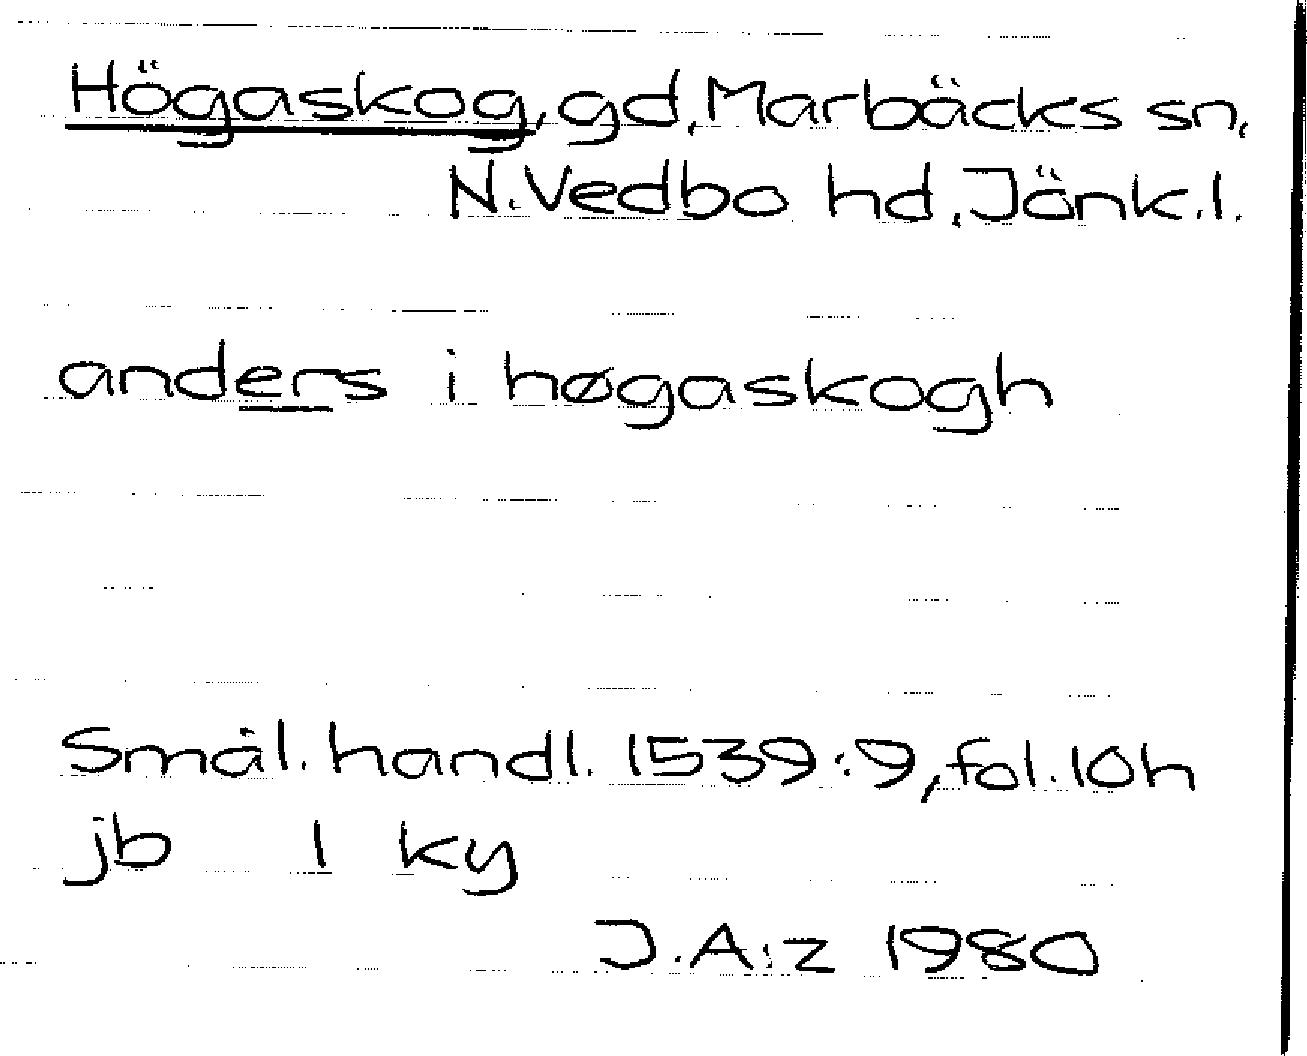 Högaskog, gd, Marbäcks sn,
N. Vedbo hd, Jönk. l.
anders i høgaskogh
Smål. handl. 1539:9, fol. 10h
jb 1 ky
J.A:z 1980